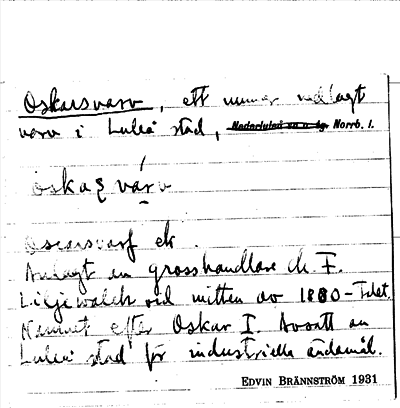 Oskarsvarv, ett numer nedlagt
varv i Luleå stad, Nederluleå sn o. tg. Norrb. l.
oskaʂ varv
Oscarsvarf ek.
Anlagt en grosshandlare Ch. F.
Liljewalch vid mitten av 1880-talet.
Namnet efter Oskar I. Avsatt av
Luleå stad för industriella ändamål.
EDVIN BRÄNNSTRÖM 1931